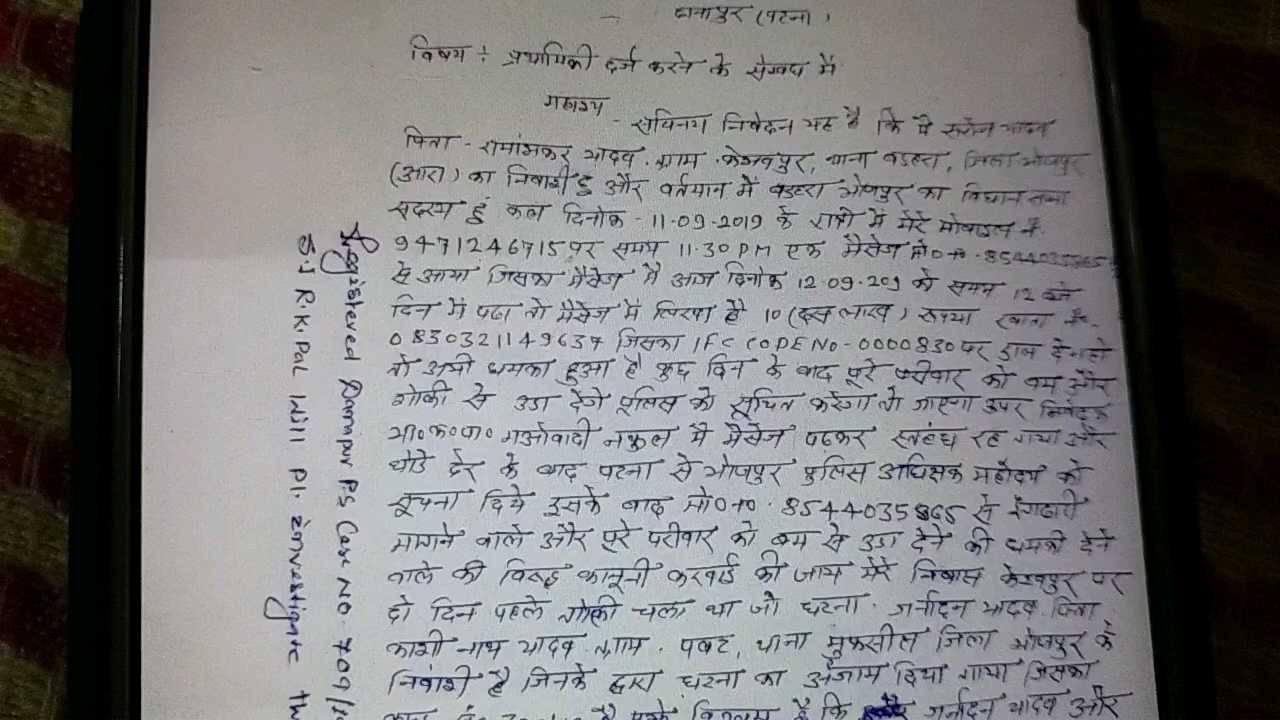 दानापुर (पटना)
विषय ÷ प्राथमिकी दर्ज करने के संबंध में
महाशय
सविनय निवेदन यह है कि मैं सरोज यादव
पिता - रामाशंकर यादव ग्राम केशवपुर, थाना बड़हरा, जिला भोजपुर
(आरा) का निवासी हुं और वर्तमान में बड़हरा भोजपुर का विधान सभा
सदस्य हुं कल दिनांक - 11-09-2019 के रात्री में मेरे मोबाइल नं.
9471246715 पर समय 11.30 PM एक मैसेज मो०न०
से आया जिसका मैसेज मै आज दिनांक 12.09.209 को समय 12 बजे
दिन में पढा तो मैसेज में लिखा है 10 (दस लाख) रूपया खाता नं.
जिसका IFC CODE NO - 0000830 पर डाल दे नही
तो अभी धमका हुआ है कुछ दिन के बाद पूरे परीवार को बम और
गोली से उडा देगे पुलिस को सूचित करेगा तो जाएगा उपर निवेदक
भा०क०पा० माओवादी नकुल मै मैसेज पढकर स्तबंध रह गाया और
थोडे देर के बाद पटना से भोजपुर पुलिस अधिक्षक महोदय को
सूचना दिये इसके बाद मो०न० 8544035865 से रंगदारी
मागने वाले और पूरे परीवार को बम से उडा देने की धमकी देने
वाले की विरूद्ध कानूनी करवाई की जाय मेरे निवास केशवपुर पर
दो दिन पहले गोली चला था जो घटना जर्नादन यादव पिता
काशी नाथ यादव ग्राम पबट, थाना मुफसील जिला भोजपुर के
निवाशी है जिनके द्वारा घटना का अंजाम दिया गाया जिसका
है मुझे विश्वास है कि जर्नादन यादव और
Registered Danapur PS Case NO. 709/
S.I R.K. Pal Will Pl. investigate th